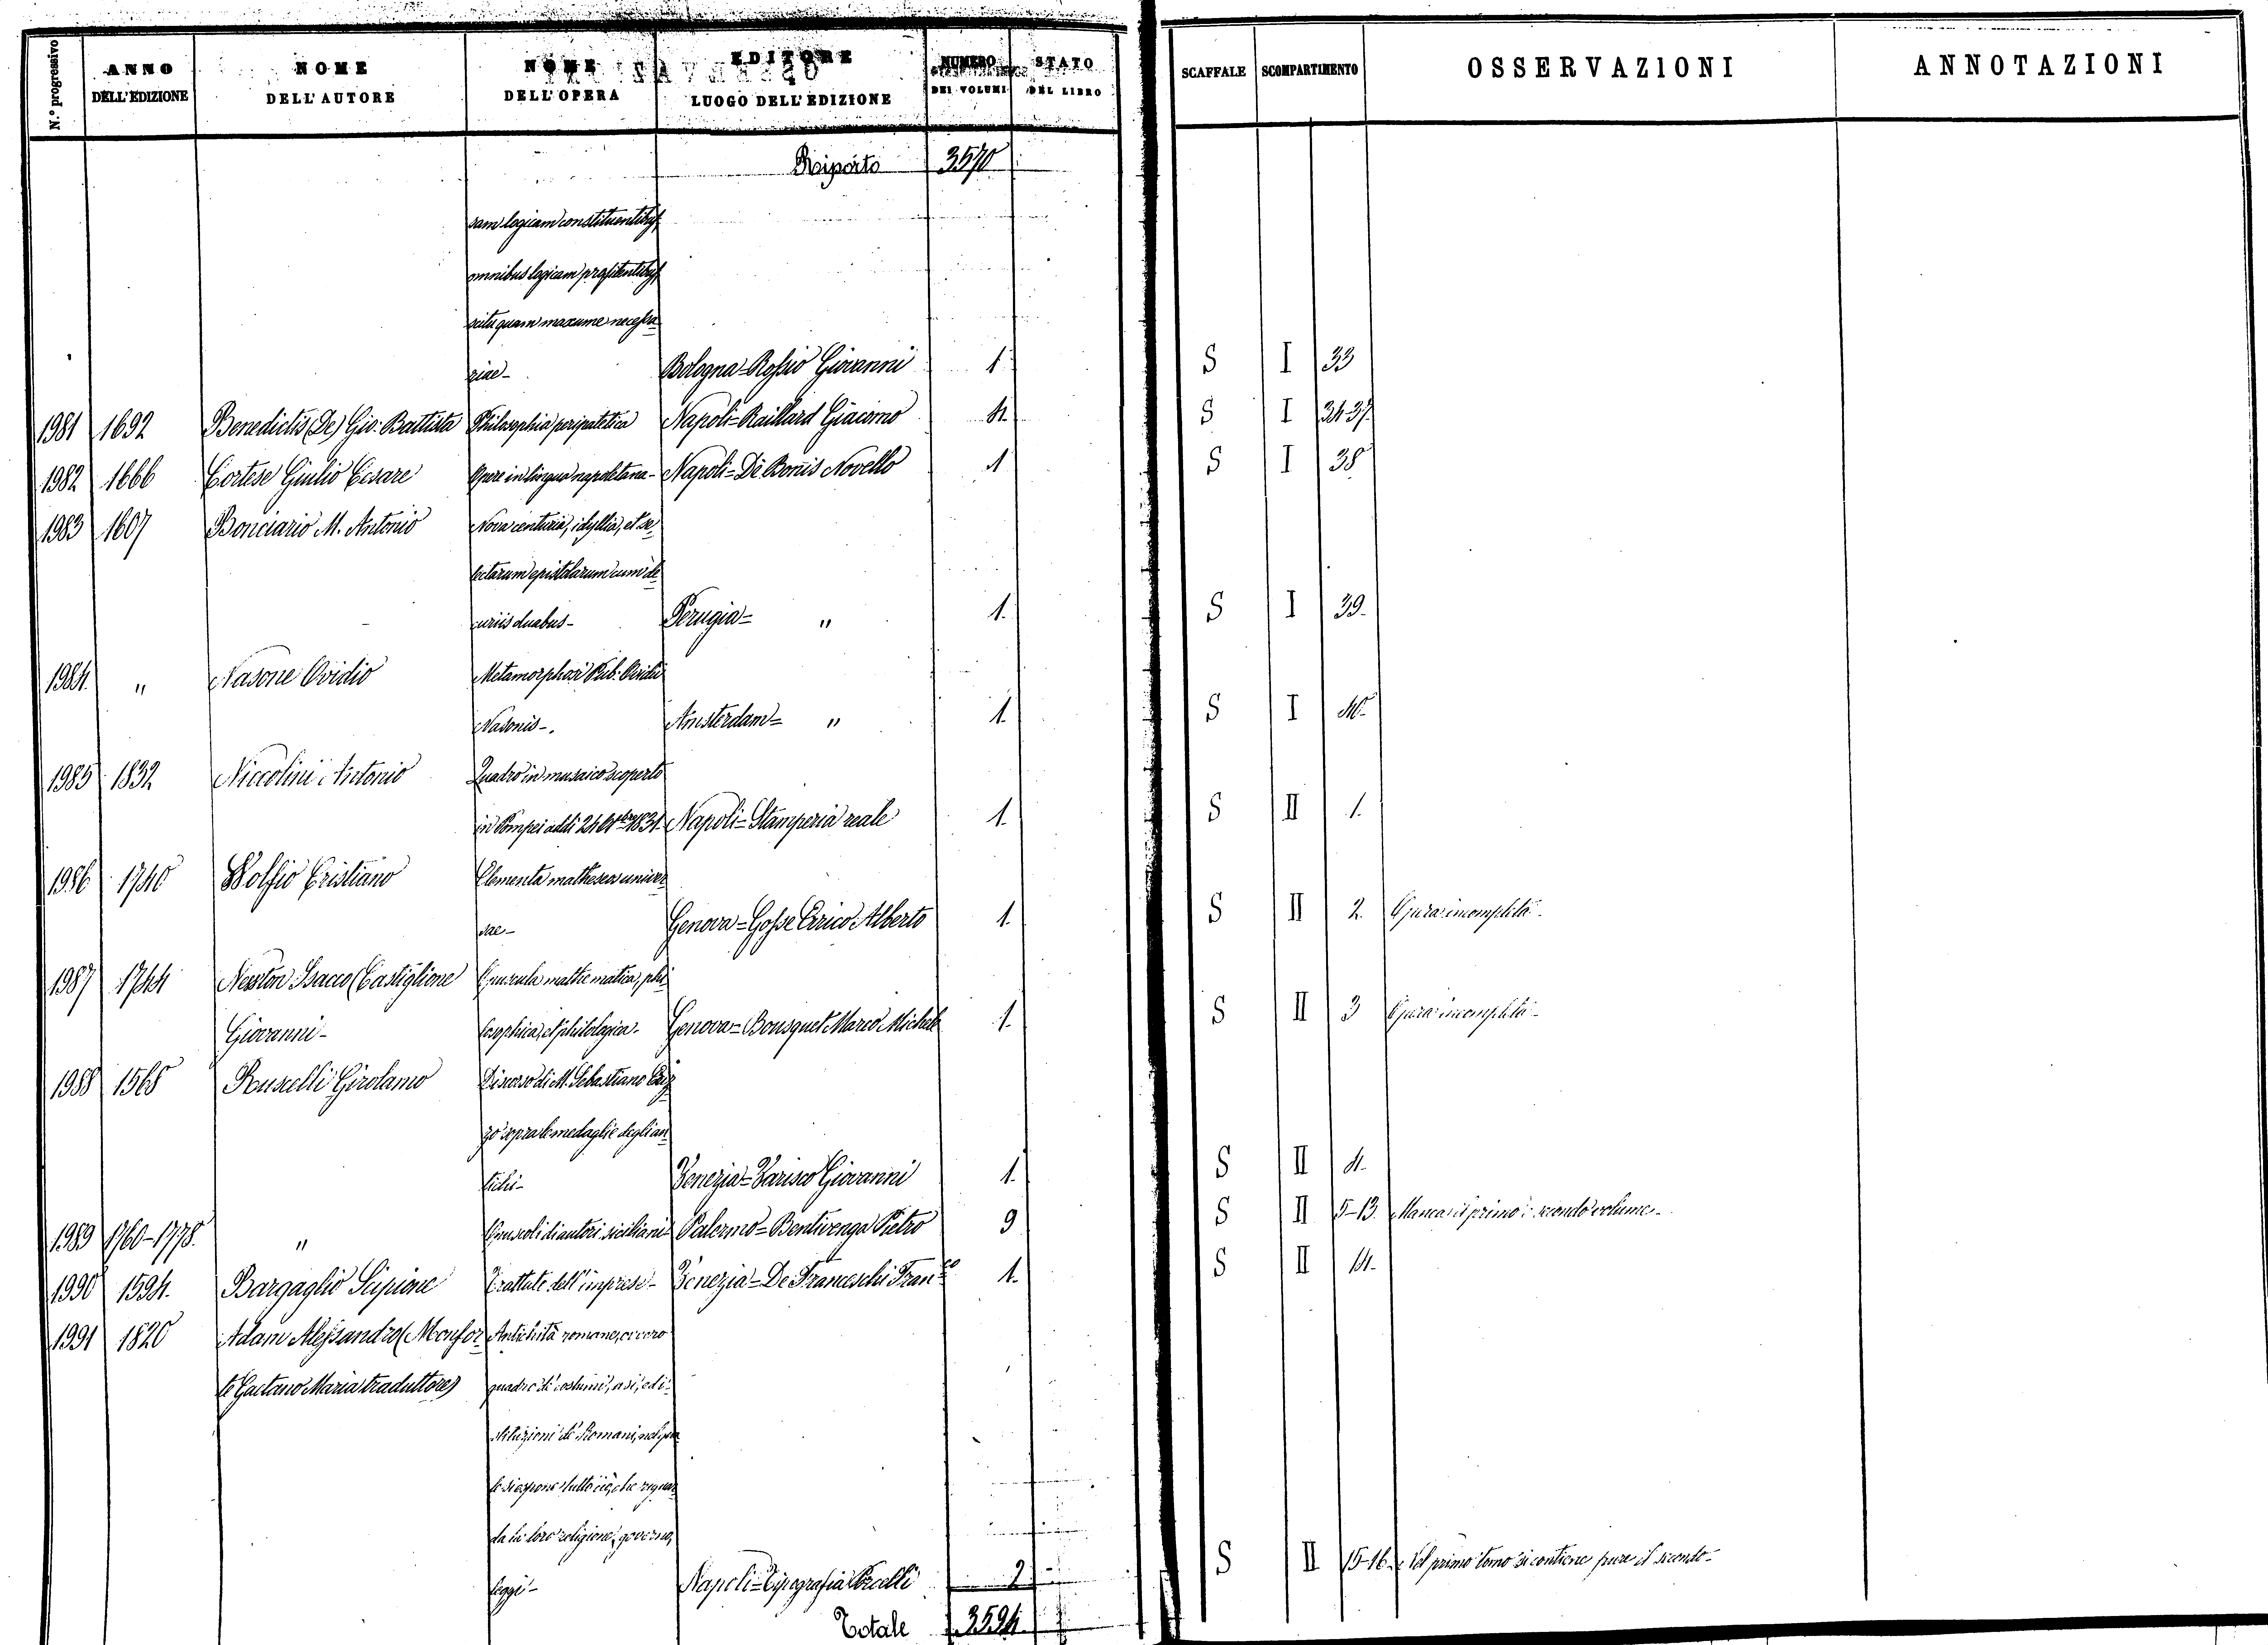 N.º progressivo | ANNO DELL'EDIZIONE | NOME DELL'AUTORE | NOME DELL'OPERA | EDITORE LUOGO DELL'EDIZIONE | NUMERO DEI VOLUMI | STATO DEL LIBRO | SCAFFALE | SCOMPARTIMENTO | OSSERVAZIONI | ANNOTAZIONI
Riporto 3570
sam logicam constituentibus
omnibus logicam profitentibus
scitu quam maxume necessa
riae- Bologna=Rossio Giovanni 1 S I 33
1981 1692 Benedictis (De) Gio: Battista Philosophia peripatetica Napoli=Raillard Giacomo 4 S I 34-37
1982 1666 Cortese Giulio Cesare Opere in lingua napoletana- Napoli=De Bonis Novello 1 S I 38
1983 1607 Bonciario M. Antonio Nova centuria, idyllia, et se
lectarum epistolarum cum de
curiis duabus- Perugia= " 1. S I 39.
1984. " Nasone Ovidio Metamorphosi Pub: Ovidii
Nasonis-. Amsterdam= " 1. S I 40.
1985 1832 Niccolini Antonio Quadro in musaico scoperto
in Pompei addì 24 8bre 1831. Napoli=Stamperia reale 1. S II 1.
1986 1740 Wolfio Cristiano Elementa matheseos univer
sae- Genova=Gosse Errico Alberto 1. S II 2. Opera incompleta-
1987 1744 Newton Isacco (Castiglione Opuscula mathematica, phi
Giovanni- losophica, et philologica- Genova=Bousquet Marco Michele 1. S II 3 Opera incompleta-
1988 1568 Ruscelli Girolamo Discorso di M. Sebastiano Eriz
zo sopra le medaglie degli an
tichi- Venezia=Varisco Giovanni 1. S II 4.
1989 1760-1778. " Opuscoli di autori siciliani- Palermo=Bentivenga Pietro 9 S II 5-13. Manca il primo e secondo volume-
1990 1594. Bargaglio Scipione Trattato dell'imprese- Venezia=De Franceschi Franco 1. S II 14.
1991 1820 Adam Alessandro (Monfor Antichità romane, ovvero
te Gaetano Maria traduttore) quadro di costumi, usi, ed i-
stituzioni de' Romani, nel qua
le si espone tutto ciò, che riguar
da la loro religione, governo,
leggi- Napoli=Tipografia Porcelli 2 S II 15-16. Nel primo tomo si contiene pure il secondo-
Totale 3594